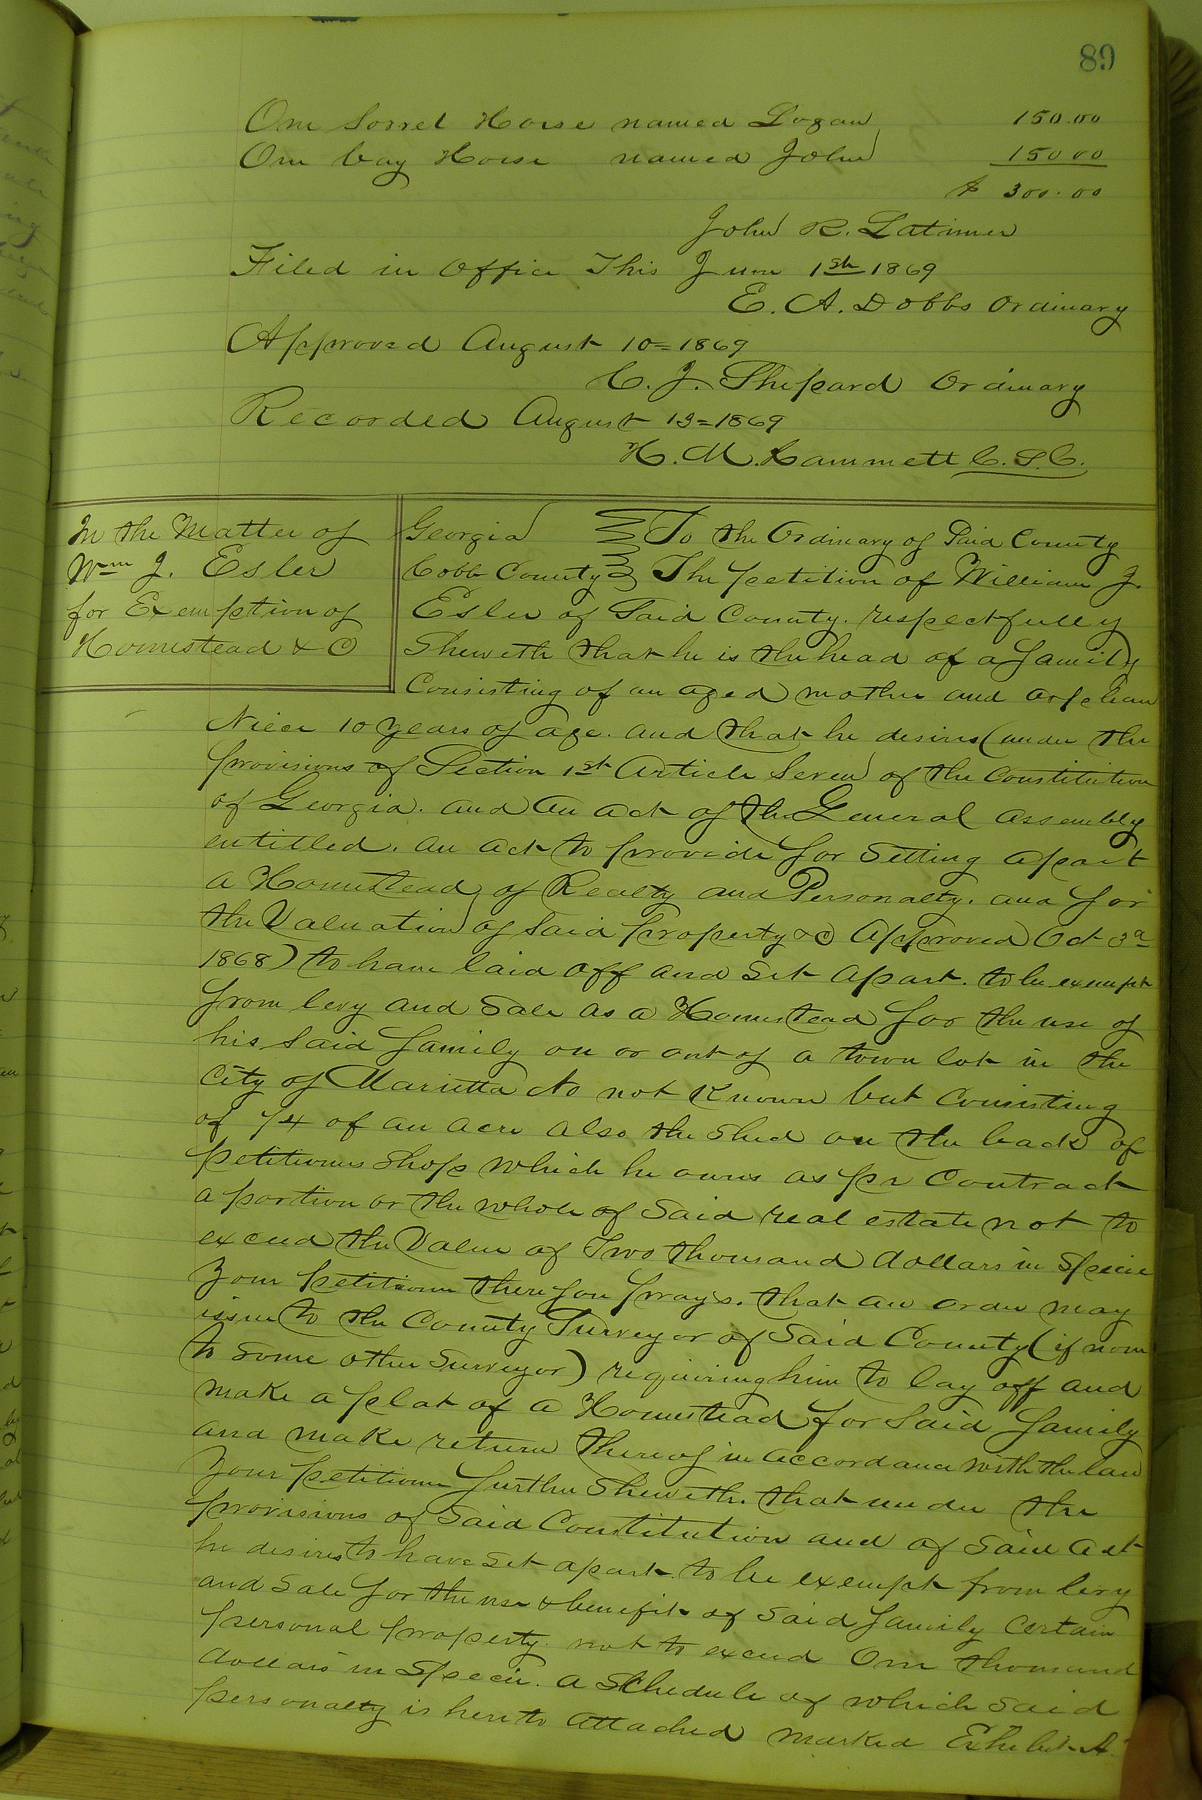 89
One Sorrel Horse named Logan 150.00
One bay Horse named John 150 00
$ 300.00
John R. Latimer
Filed in Office This June 1st 1869
E. A. Dobbs Ordinary
Approved August 10 = 1869
C. J. Shepard Ordinary
Recorded August 13 = 1869
H. M. Hammett C.S.C.
In the Matter of
Wm J. Esler
for Exemption of
Homestead & C
Georgia To the Ordinary of Said County
Cobb County The petition of William J.
Esler of Said County. respectfully
Sheweth that he is the head of a family
Consisting of an aged mother and orphan
Niece 10 years of age. and that he desires (under the
provisions of Section 1st Article Seven of the Constitution
of Georgia. and an act of the General Assembly
entitled. an act to provide for Setting apart
a Homestead of Realty and Personalty. and for
the Valuation of Said property &c Approved Oct 3d
1868) to have laid off and Set apart. to be exempt
from levy and Sale as a Homestead for the use of
his Said family on or out of a town lot in the
City of Marietta No not Known but Consisting
of 1/4 of an acre also the Shed on the back of
petitioners Shop which he owns as pr Contract
a portion or the whole of Said real estate not to
exceed the Value of Two thousand dollars in Specie
Your petitioner therefore prays. that an order may
issue to the County Surveyor of Said County (if none
to Some other Surveyor) requiring him to lay off and
make a plat of a Homestead for Said family
and make return thereof in accordance with the law
Your petitioner further Sheweth. that under the
provisions of Said Constitution and of Said act
he desires to have Set apart to be exempt from levy
and Sale for the use & benefit of Said family Certain
personal property. not to exceed One thousand
dollars in Specie. a Schedule of which Said
personalty is hereto attached marked Exhibit A